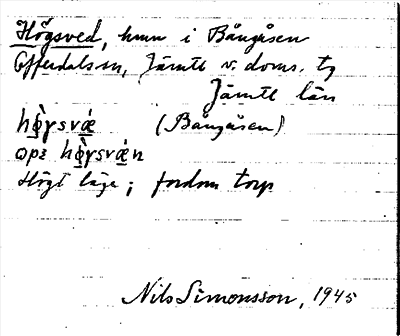 Högsved, hmn i Bångåsen
Offerdals sn, Jämtl v. doms. tg
Jämtl län
hø̀gsvǽ (Bångåsen)
ops hø̀gsvǽn
Högt läge; fordom torp
Nils Simonsson, 1945